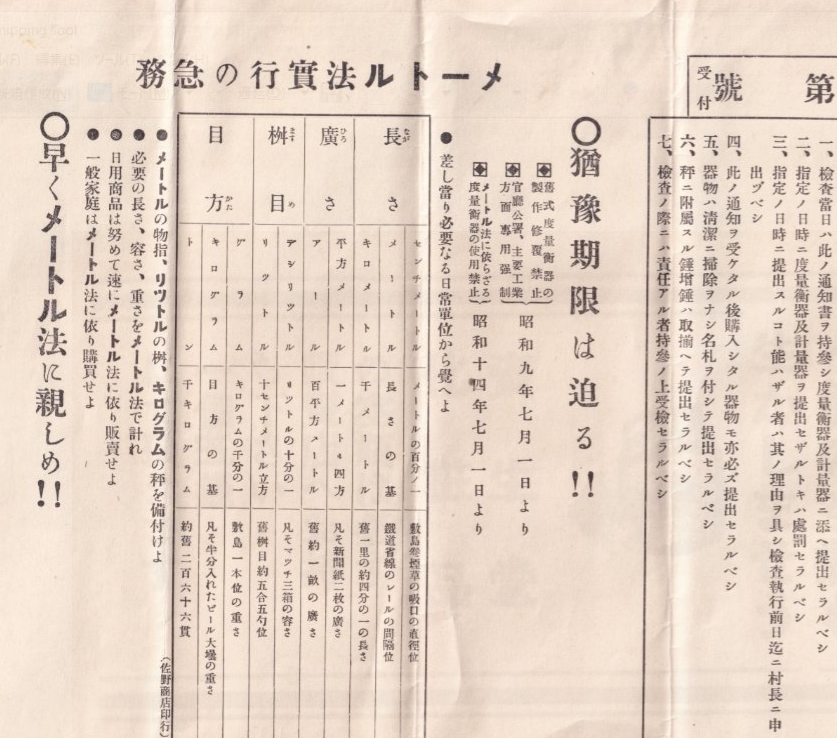 第
號
受付
一、檢查當日ハ此ノ通知書ヲ持參シ度量衡器及計量器ニ添ヘ提出セラルベシ
二、指定ノ日時ニ度量衡器及計量器ヲ提出セザルトキハ處罰セラルベシ
三、指定ノ日時ニ提出スルコト能ハザル者ハ其ノ理由ヲ具シ檢查執行前日迄ニ村長ニ申
出ヅベシ
四、此ノ通知ヲ受ケタル後購入シタル器物モ亦必ズ提出セラルベシ
五、器物ハ清潔ニ掃除ヲナシ名札ヲ付シテ提出セラルベシ
六、秤ニ附屬スル錘增錘ハ取揃ヘテ提出セラルベシ
七、檢查ノ際ニハ責任アル者持參ノ上受檢セラルベシ
メートル法實行の急務
〇猶豫期限は迫る!!
舊式度量衡器の製作修覆禁止
官廳公署、主要工業方面專用強制
昭和九年七月一日より
メートル法に依らざる度量衡器の使用禁止
昭和十四年七月一日より
●差し當り必要なる日常單位から覺へよ
長さ ながさ
センチメートル メートルの百分ノ一 敷島卷煙草の吸口の直徑位
メートル 長さの基 鐵道省線のレールの間隔位
キロメートル 千メートル 舊一里の約四分の一の長さ
廣さ ひろさ
平方メートル 一メートル四方 凡そ新聞紙二枚の廣さ
アール 百平方メートル 舊約一畝の廣さ
桝目 ますめ
デシリツトル リツトルの十分の一 凡そマツチ三箱の容さ
リツトル 十センチメートル立方 舊桝目約五合五勺位
目方 めかた
グラム キログラムの千分の一 敷島一本位の重さ
キログラム 目方の基 凡そ半分入れたビール大壜の重さ
トン 千キログラム 約舊二百六十六貫
●メートルの物指、リツトルの桝、キログラムの秤を備付けよ
●必要の長さ、容さ、重さをメートル法で計れ
●日用商品は努めて速にメートル法に依り販賣せよ
●一般家庭はメートル法に依り購買せよ
〇早くメートル法に親しめ!!
(佐野商店印行)